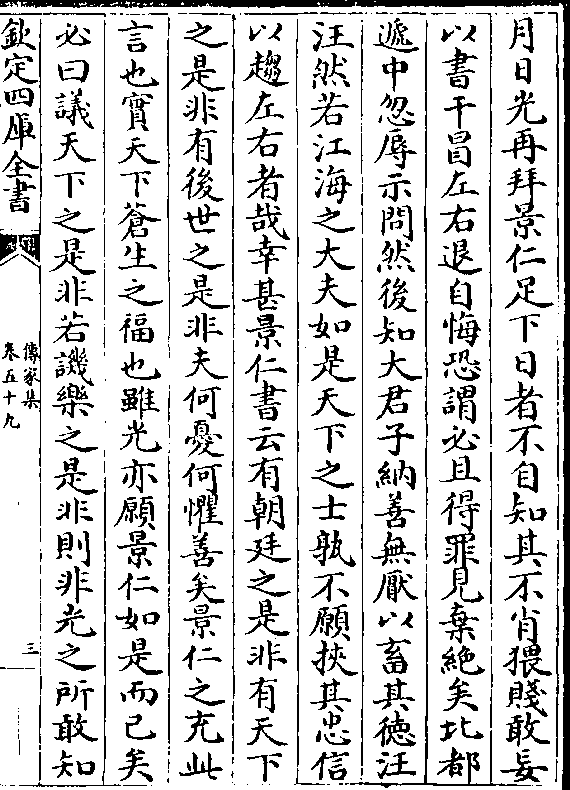 月日光再拜景仁足下日者不自知其不肖猥賤敢妄
以書干冒左右退自悔恐謂必且得罪見棄絶矣比都
遞中忽辱示問然後知大君子納善無厭以畜其徳汪
汪然若江海之大夫如是天下之士孰不願挾其忠信
以趨左右者哉幸甚景仁書云有朝廷之是非有天下
之是非有後世之是非夫何憂何懼善矣景仁之充此
言也實天下蒼生之福也雖光亦願景仁如是而已矣
必曰議天下之是非若譏樂之是非則非光之所敢知
欽定四庫全書
傳家集
卷五十九
三